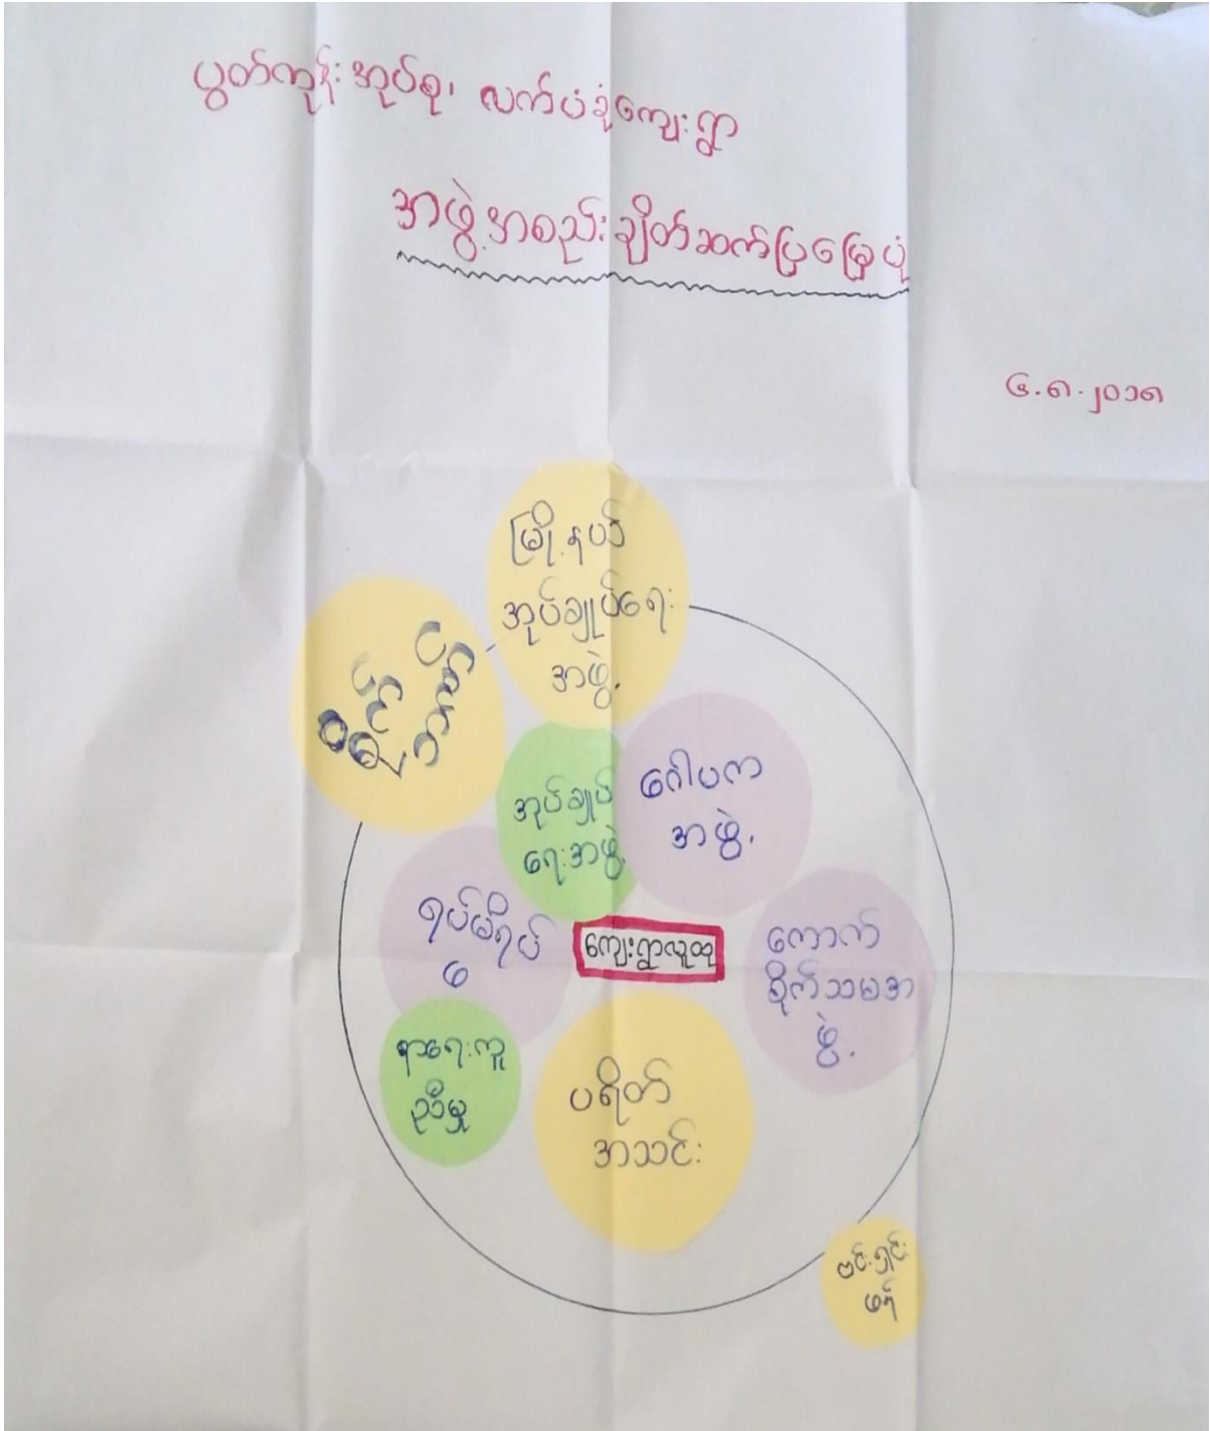 ပွတ်ကုန်းအုပ်စု၊ လက်ပံခုံကျေးရွာ
အဖွဲ့အစည်းချိတ်ဆက်ပြမြေပုံ
၆.၈.၂၀၁၈
မြို့နယ်
အုပ်ချုပ်ရေး
အဖွဲ့
အုပ်ချုပ်
ရေးအဖွဲ့
ဂေါပက
အဖွဲ့
ရပ်မိရပ်
ဖ
ကျေးရွာလူထု
ကောက်
စိုက်သမအ
ဖွဲ့
နာရေးကူ
ညီမှု
ပရိတ်
အသင်း
ဗင်းရှင်း
ဖန်